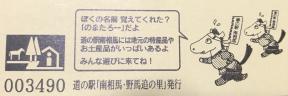 ぼくの名前 覚えてくれた?
「のまたろー」だよ
道の駅南相馬には地元の特産品や
お土産品がいっぱいあるよ
みんな遊びに来てね!
003490 道の駅「南相馬・野馬追の里」発行